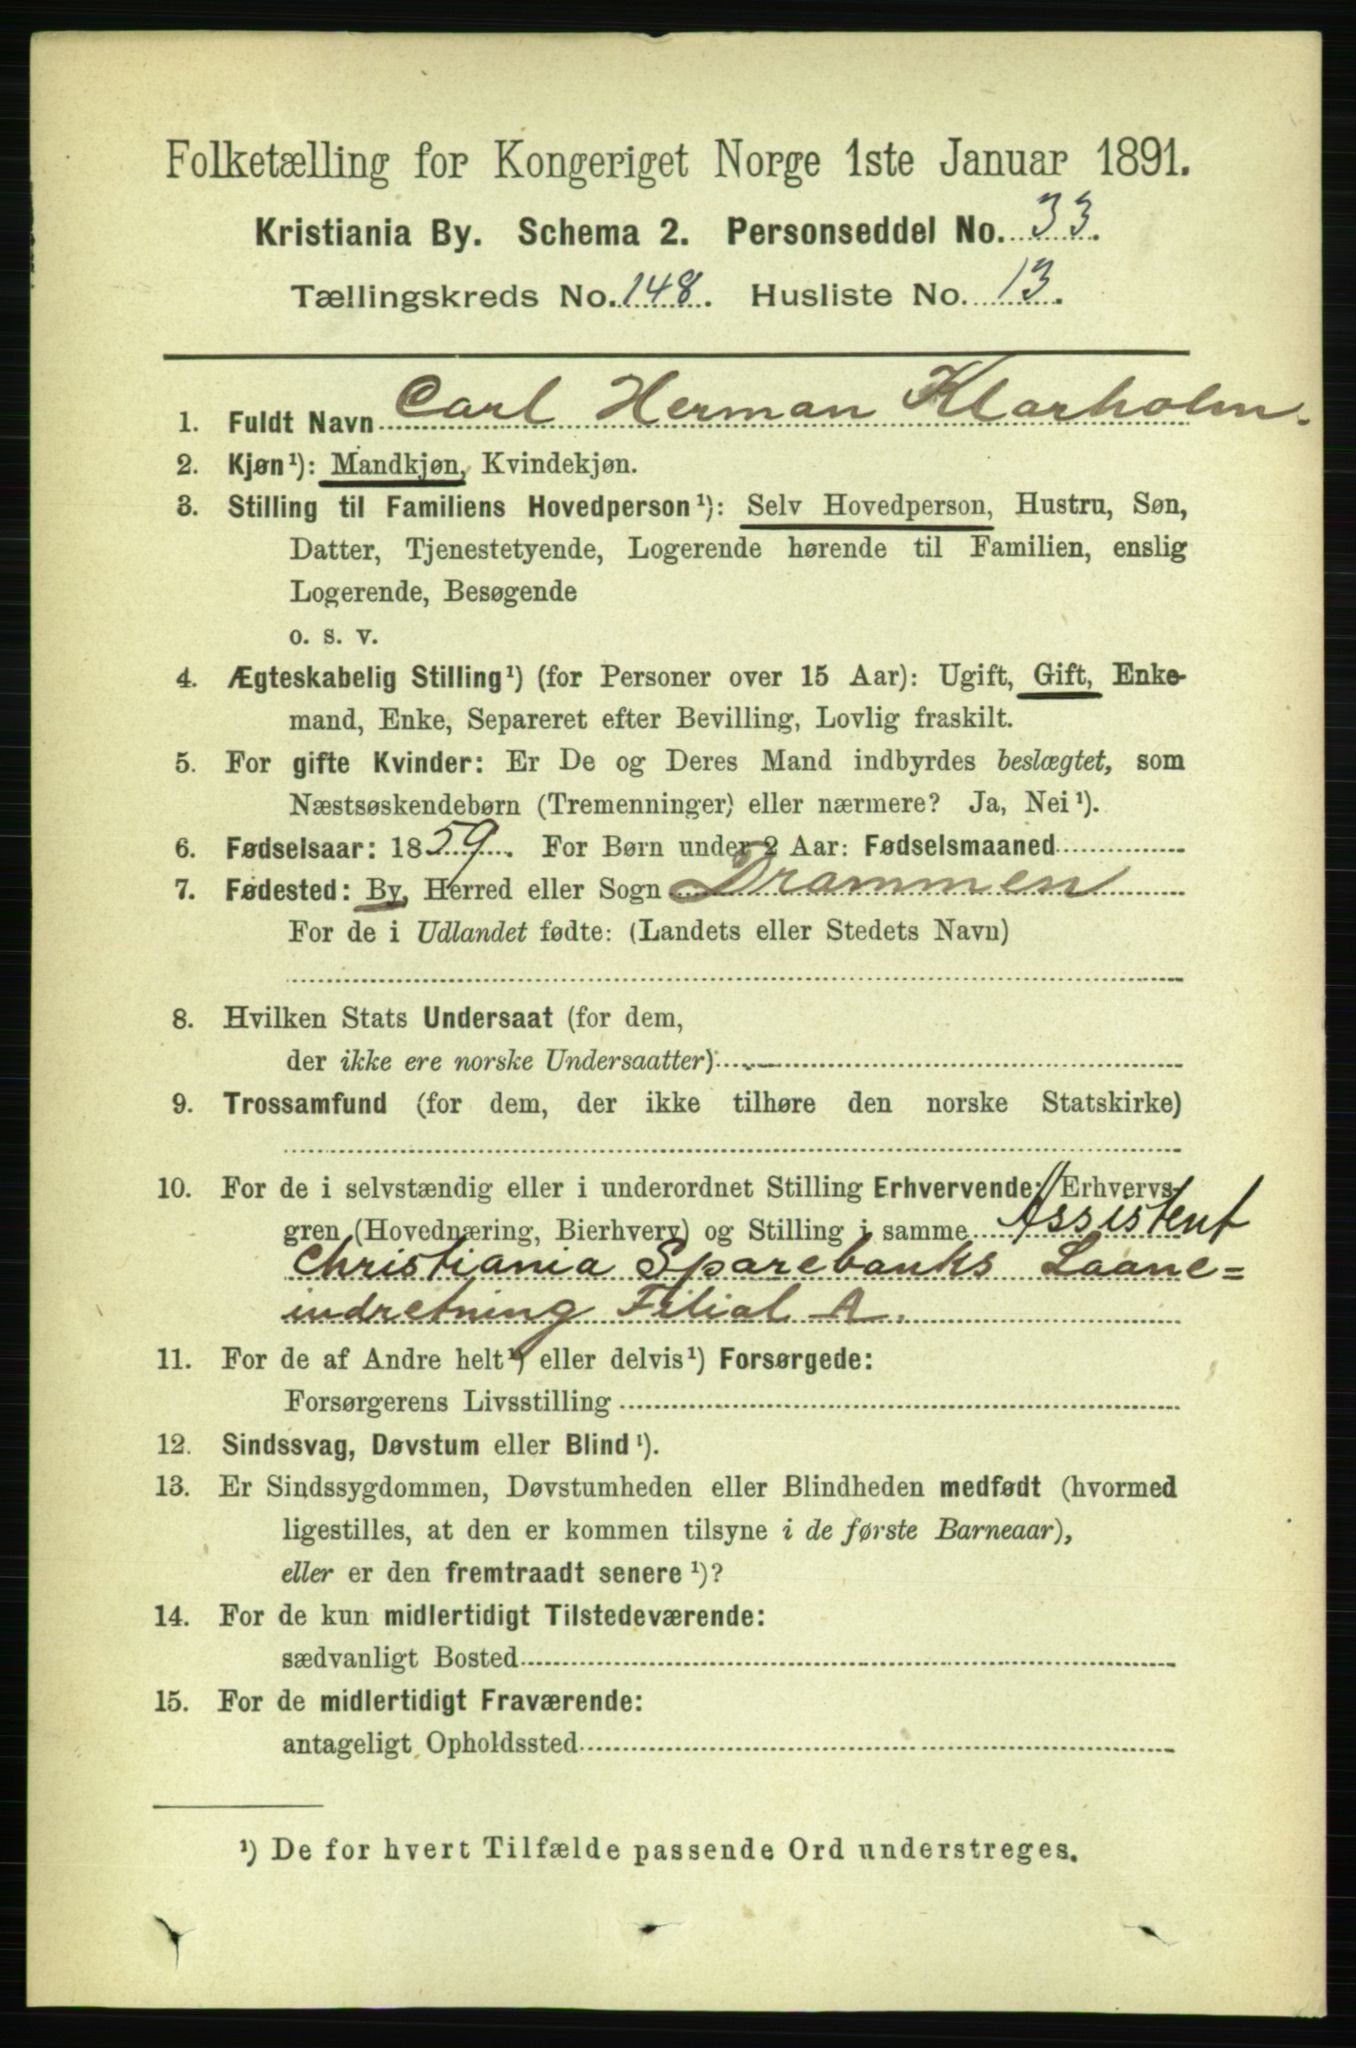 Folketælling for Kongeriget Norge 1ste Januar 1891.
Kristiania By. Schema 2. Personseddel No. 33.
Tællingskreds No. 148. Husliste No. 13.
1. Fuldt Navn Carl Herman Klarholm.
2. Kjøn¹): Mandkjøn, Kvindekjøn.
3. Stilling til Familiens Hovedperson¹): Selv Hovedperson, Hustru, Søn,
Datter, Tjenestetyende, Logerende hørende til Familien, enslig
Logerende, Besøgende
o. s. v.
4. Ægteskabelig Stilling¹) (for Personer over 15 Aar): Ugift, Gift, Enke-
mand, Enke, Separeret efter Bevilling, Lovlig fraskilt.
5. For gifte Kvinder: Er De og Deres Mand indbyrdes beslægtet, som
Næstsøskendebørn (Tremenninger) eller nærmere? Ja, Nei¹).
6. Fødselsaar: 1859. For Børn under 2 Aar: Fødselsmaaned
7. Fødested: By, Herred eller Sogn Drammen
For de i Udlandet fødte: (Landets eller Stedets Navn)
8. Hvilken Stats Undersaat (for dem,
der ikke ere norske Undersaatter)
9. Trossamfund (for dem, der ikke tilhøre den norske Statskirke)
10. For de i selvstændig eller i underordnet Stilling Erhvervende: Erhvervs-
gren (Hovednæring, Bierhverv) og Stilling i samme Assistent
Christiania Sparebanks Laane=
indretning Filial A.
11. For de af Andre helt¹) eller delvis¹) Forsørgede:
Forsørgerens Livsstilling
12. Sindssvag, Døvstum eller Blind¹).
13. Er Sindssygdommen, Døvstumheden eller Blindheden medfødt (hvormed
ligestilles, at den er kommen tilsyne i de første Barneaar),
eller er den fremtraadt senere¹)?
14. For de kun midlertidigt Tilstedeværende:
sædvanligt Bosted
15. For de midlertidigt Fraværende:
antageligt Opholdssted
¹) De for hvert Tilfælde passende Ord understreges.